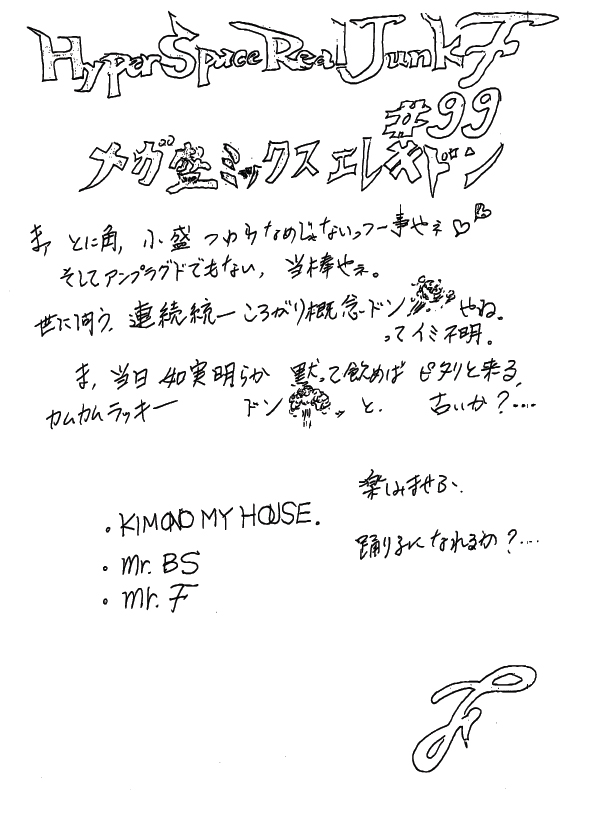 HyperSpaceRealJunkF
#99
メガ盛ミックスエレキドン
ま、とに角, 小盛 つわりなめじゃないっつー事やネ♡
そしてアンプラグドでもない, 当棒やネ。
世に問う、連続統一ころがり概念ードン やね。
ってイミ不明。
ま, 当日 如実明らか 黙って飲めば ピタリと来る,
カムカムラッキー ドン と. 古いか?....
楽しみませう、
・KIMONO MY HOUSE.
踊り子になれるか?....
・Mr. BS
・Mr. F
F